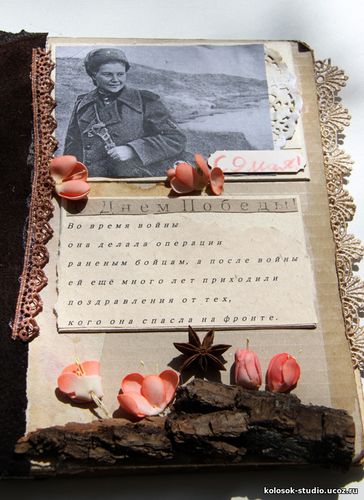 С 9 мая!
Днем Победы
Во время войны
она делала операции
раненым бойцам, а после войны
ей ещё много лет приходили
поздравления от тех,
кого она спасла на фронте.
kolosok-studio.ucoz.ru